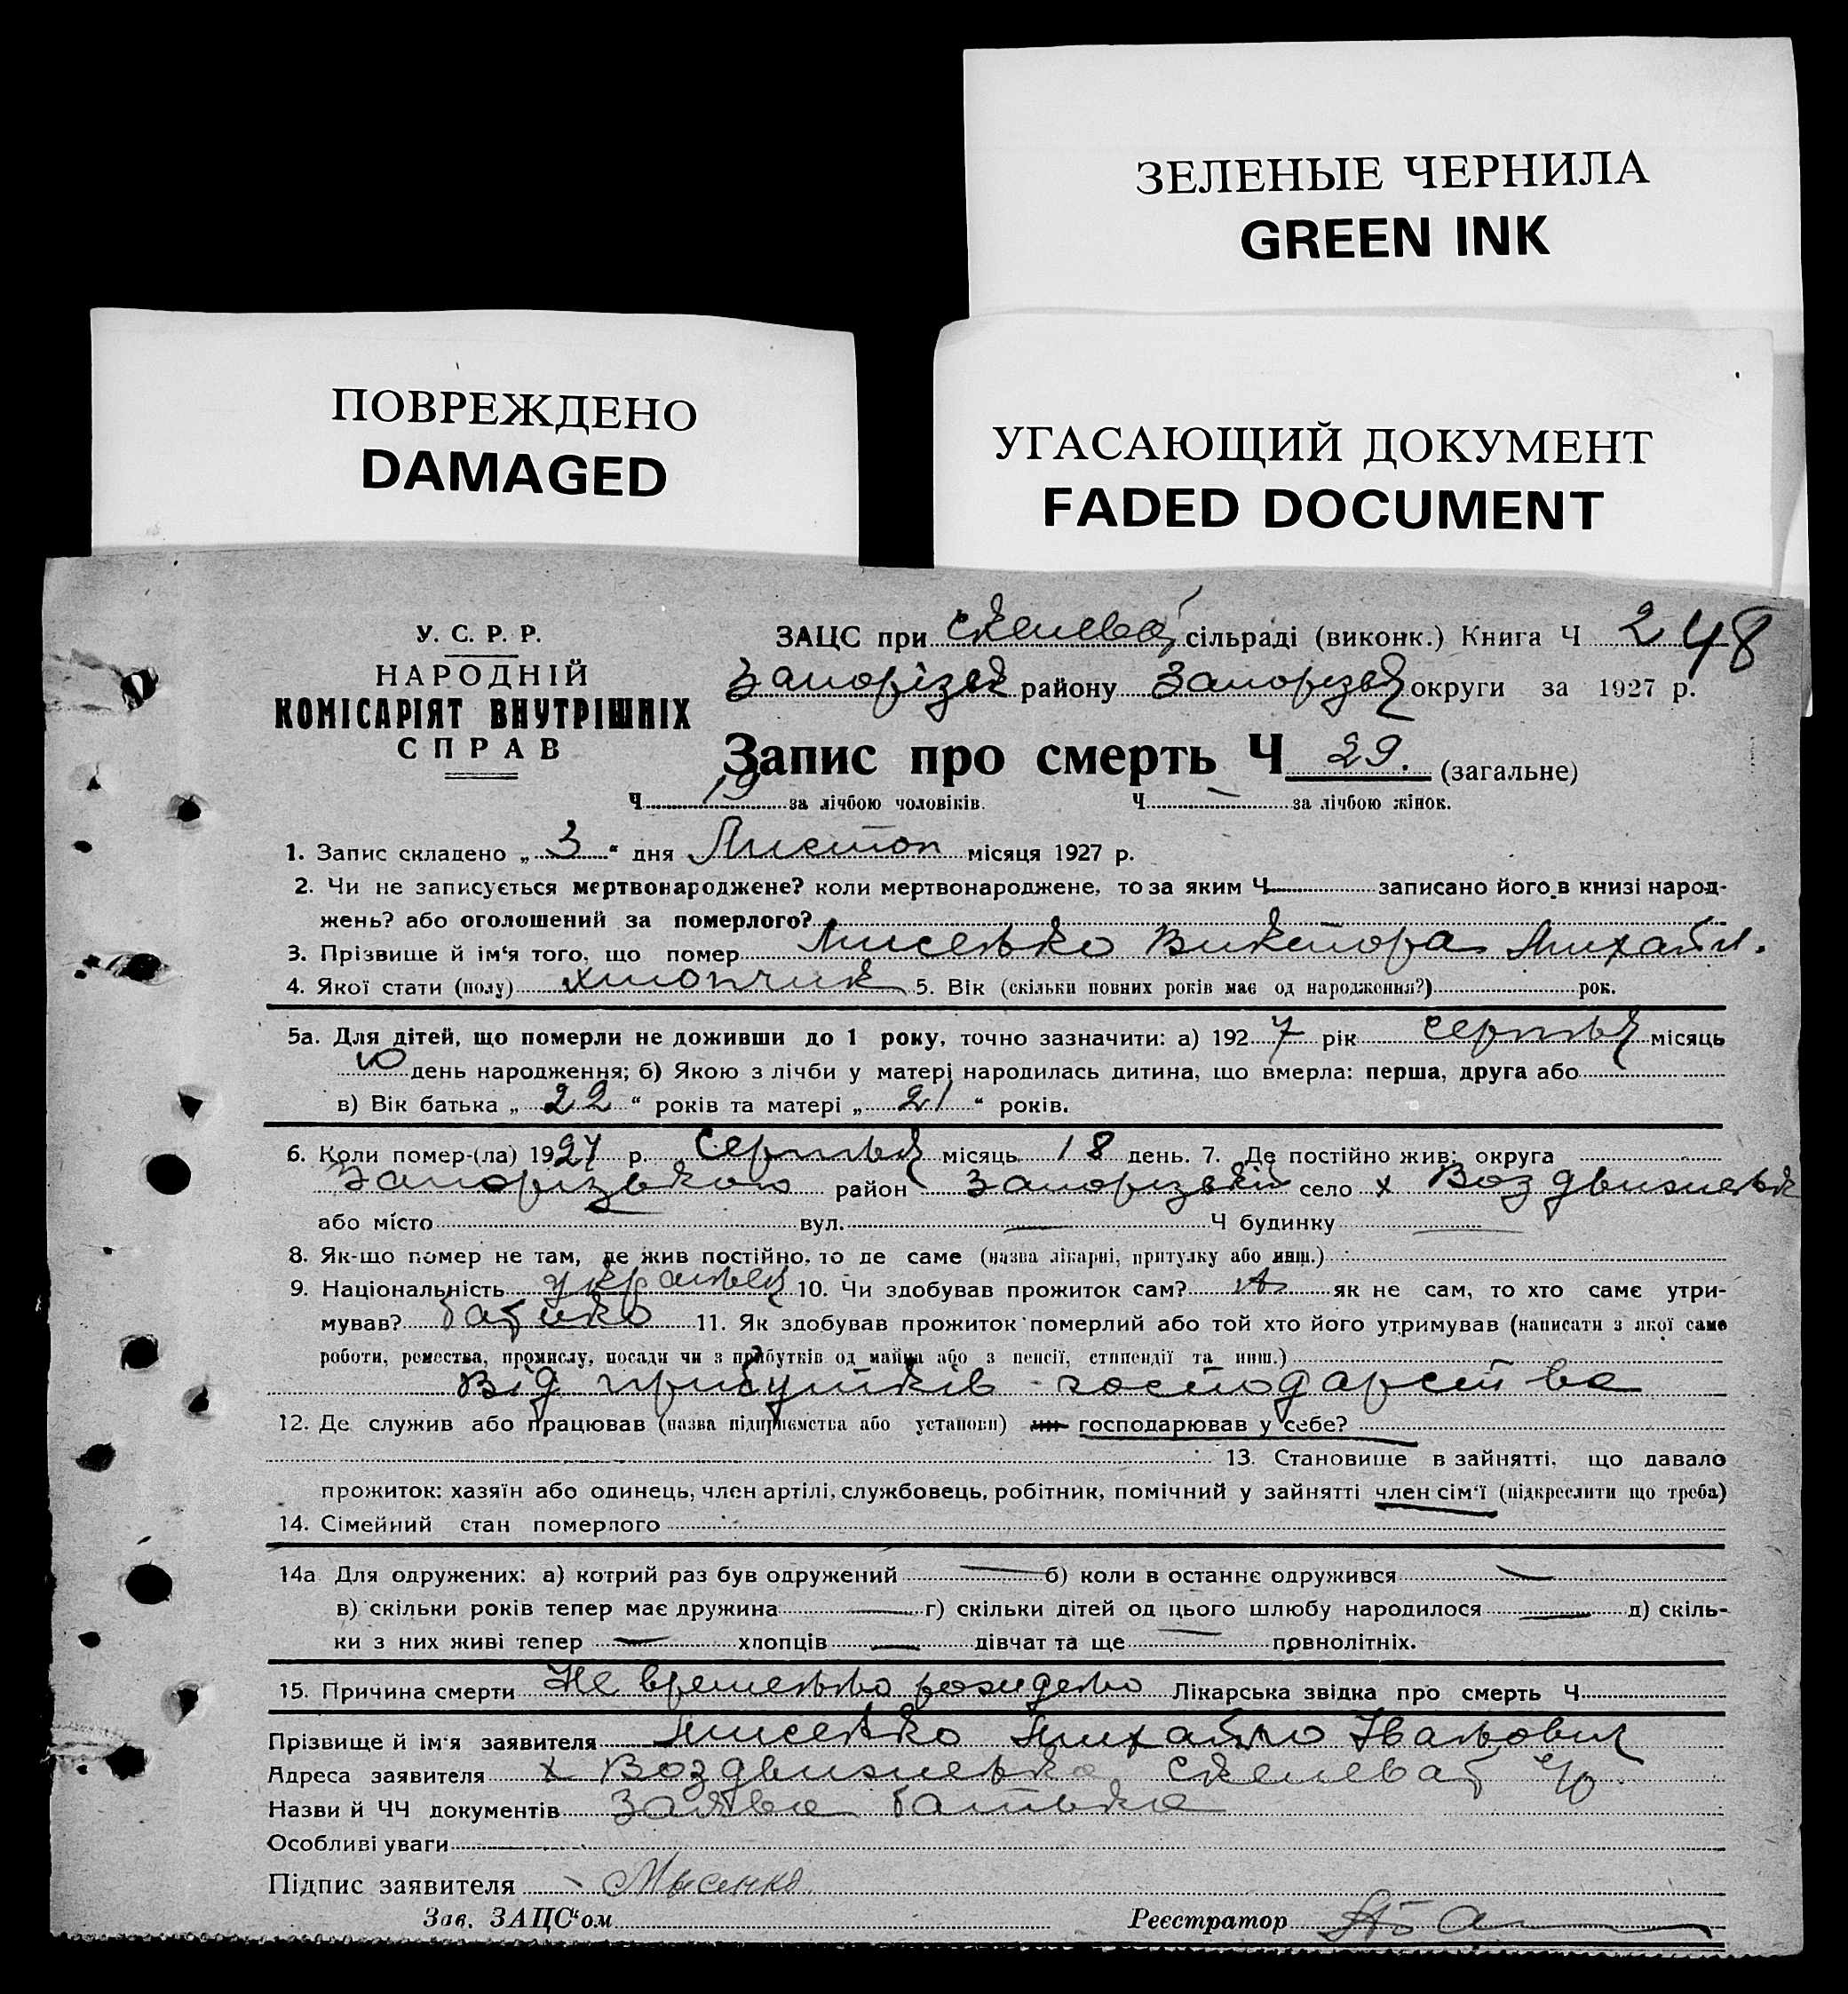 ЗЕЛЕНЫЕ ЧЕРНИЛА
GREEN INK
ПОВРЕЖДЕНО
DAMAGED
УГАСАЮЩИЙ ДОКУМЕНТ
FADED DOCUMENT
У. С. Р. Р.
НАРОДНІЙ
КОМІСАРІЯТ ВНУТРІШНІХ
СПРАВ
ЗАЦС при сільраді (виконк.) Книга Ч 248
Запорізьк району Запорізьк округи за 1927 р.
Запис про смерть Ч 29. (загальне)
Ч 19 за лічбою чоловіків. Ч — за лічбою жінок.
1. Запис складено „ 3 “ дня Листоп місяця 1927 р.
2. Чи не записується мертвонароджене? коли мертвонароджене, то за яким Ч записано його в книзі народ-
жень? або оголошений за померлого?
3. Прізвище й ім‘я того, що помер Виктора Михайл.
4. Якої стати (полу) хлопчик 5. Вік (скільки повних років має од народження?) рок.
5а. Для дітей, що померли не доживши до 1 року, точно зазначити: а) 1927 рік серпня місяць
10 день народження; б) Якою з лічби у матері народилась дитина, що вмерла: перша, друга або
в) Вік батька „ 22 “ років та матері „ 21 “ років.
6. Коли помер-(ла) 1927 р. серпня місяць 18 день. 7. Де постійно жив: округа
Запорізького район Запорізький село х Воздвиженка
або місто вул. — Ч будинку —
8. Як-що помер не там, де жив постійно, то де саме (назва лікарні, притулку або инш.)
9. Національність українец 10. Чи здобував прожиток сам? ні як не сам, то хто саме утри-
мував? батько 11. Як здобував прожиток померлий або той хто його утримував (написати з якої саме
роботи, ремества, промислу, посади чи з прибутків од майна або з пенсії, стипендії та инш.)
Від прибутків господарства
12. Де служив або працював (назва підприємства або установи) чи господарював у себе?
13. Становище в зайнятті, що давало
прожиток: хазяїн або одинець, член артілі, службовець, робітник, помічний у зайнятті член сім‘ї (підкреслити що треба)
14. Сімейний стан померлого
14а Для одружених: а) котрий раз був одружений — б) коли в останнє одружився —
в) скільки років тепер має дружина — г) скільки дітей од цього шлюбу народилося — д) скіль-
ки з них живі тепер — хлопців — дівчат та ще — повнолітніх.
15. Причина смерти Не временно рождено Лікарська звідка про смерть Ч
Прізвище й ім‘я заявителя Михайло Иванович
Адреса заявителя х Воздвиженка
Назви й ЧЧ документів Заява батька
Особливі уваги
Підпис заявителя
Зав. ЗАЦС‘ом Реєстратор